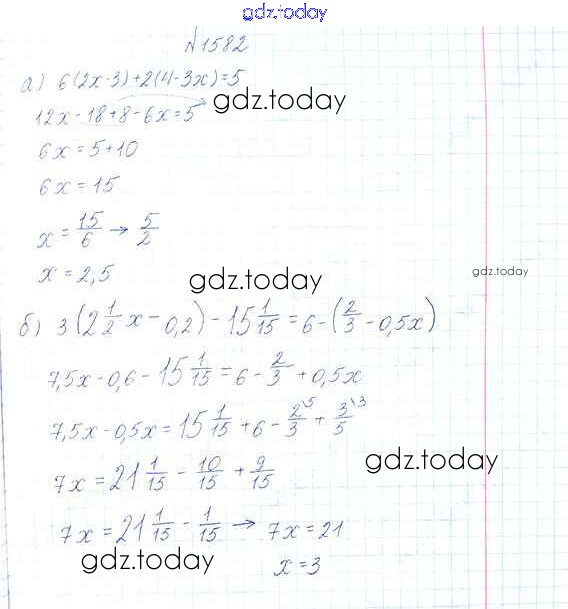 gdz.today
№1582
а) 6(2x-3)+2(4-3x)=5
12x-18+8-6x=5
gdz.today
6x=5+10
6x=15
x=15/6→5/2
gdz.today
x=2,5
gdz.today
б) 3(2 1/2x-0,2)-15 1/15=6-(2/3-0,5x)
7,5x-0,6-15 1/15=6-2/3+0,5x
7,5x-0,5x=15 1/15+6-2/3\5+3/5\3
gdz.today
7x=21 1/15-10/15+9/15
7x=21 1/15-1/15→7x=21
gdz.today
x=3